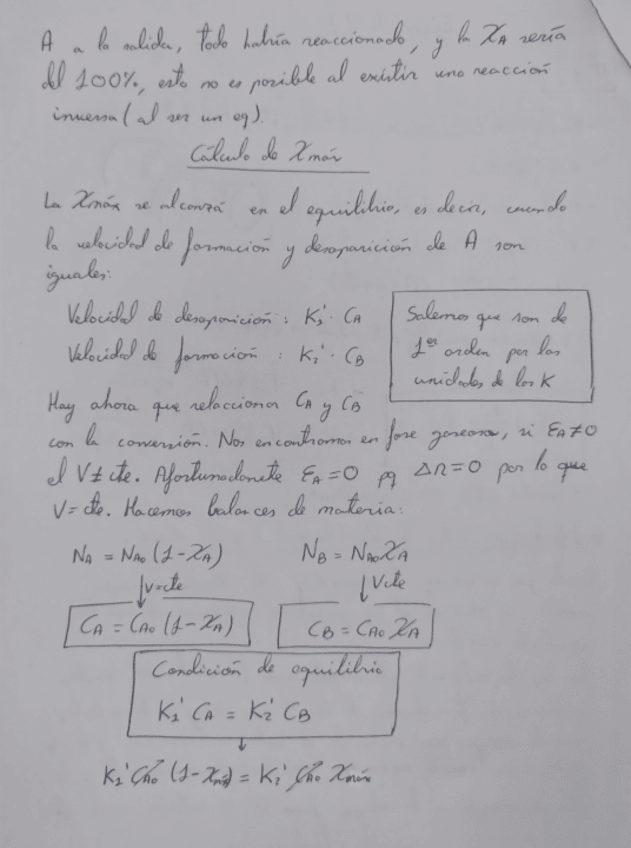 A a la salida, todo habría reaccionado, y la XA sería
del 100%, esto no es posible al existir una reacción
inversa (al ser un eq).
Cálculo de Xmáx
La Xmáx se alcanzá en el equilibrio, es decir, cuando
la velocidad de formación y desaparición de A son
iguales:
Velocidad de desaparición : K1' · CA
Velocidad de formación : K2' · CB
Sabemos que son de
1er orden por las
unidades de las K
Hay ahora que relaccionar CA y CB
con la conversión. Nos encontramos en fase gaseosa, si εA≠0
el V≠cte. Afortunadamente εA=0 pq Δn=0 por lo que
V=cte. Hacemos balances de materia:
NA = NA0 (1-XA) NB = NA0XA
↓V=cte ↓Vcte
CA = CA0 (1-XA) CB = CA0 XA
Condición de equilibrio
K1' CA = K2' CB
↓
K1' CA0 (1-Xmáx) = K2' CA0 Xmáx